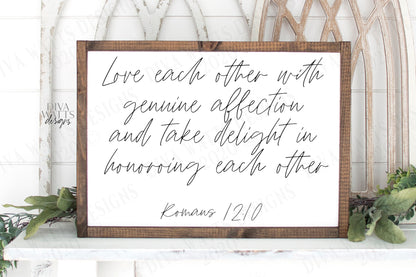 Love each other with
genuine affection
and take delight in
honoroing each other
Romans 12:10
DIVA
WATTS
designs